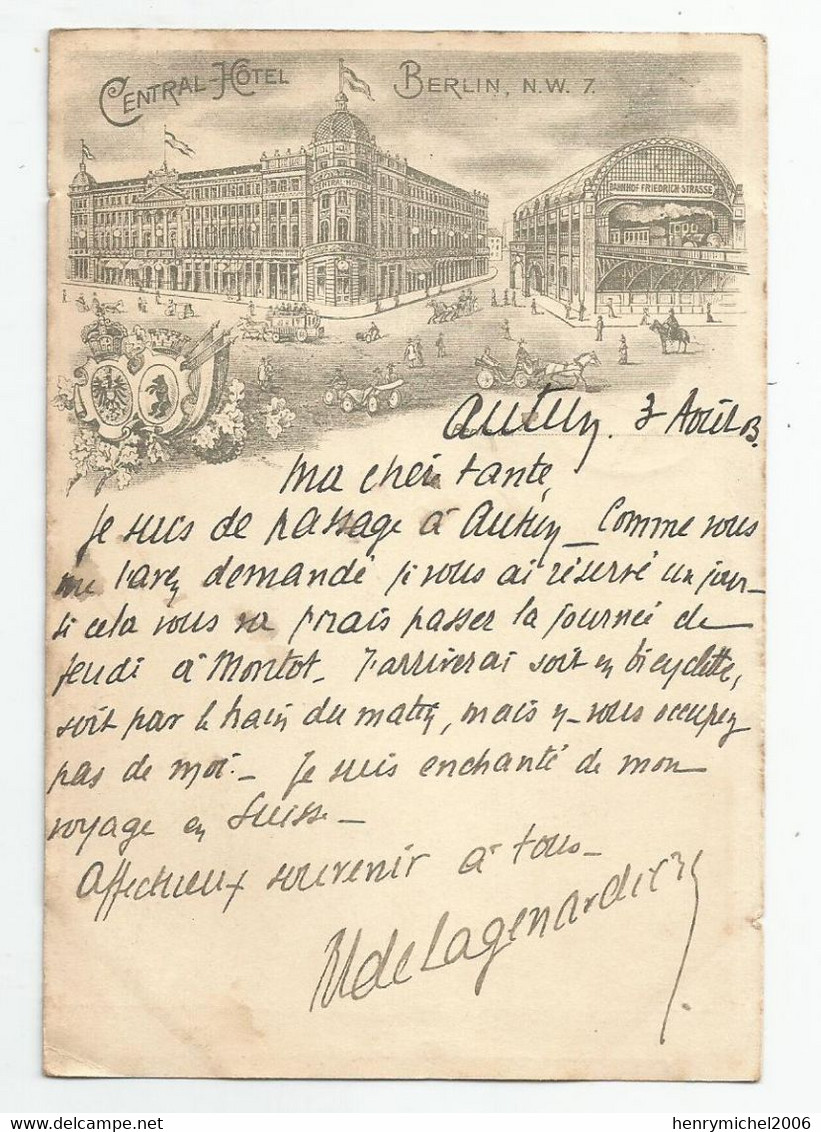 CENTRAL-HOTEL BERLIN, N.W. 7.
CENTRAL HOTEL
BAHNHOF FRIEDRICH-STRASSE
Autun, 3 Août 03.
Ma chère tante,
Je suis de passage à Autun – Comme vous
me l'avez demandé je vous ai réservé un jour –
si cela vous va j'irais passer la journée de
jeudi à Montot. J'arriverai soit en bicyclette,
soit par le train du matin, mais ne vous occupez
pas de moi. – Je suis enchanté de mon
voyage en Suisse –
Affectueux souvenir à tous –
de Lagenardière
henrymichel2006